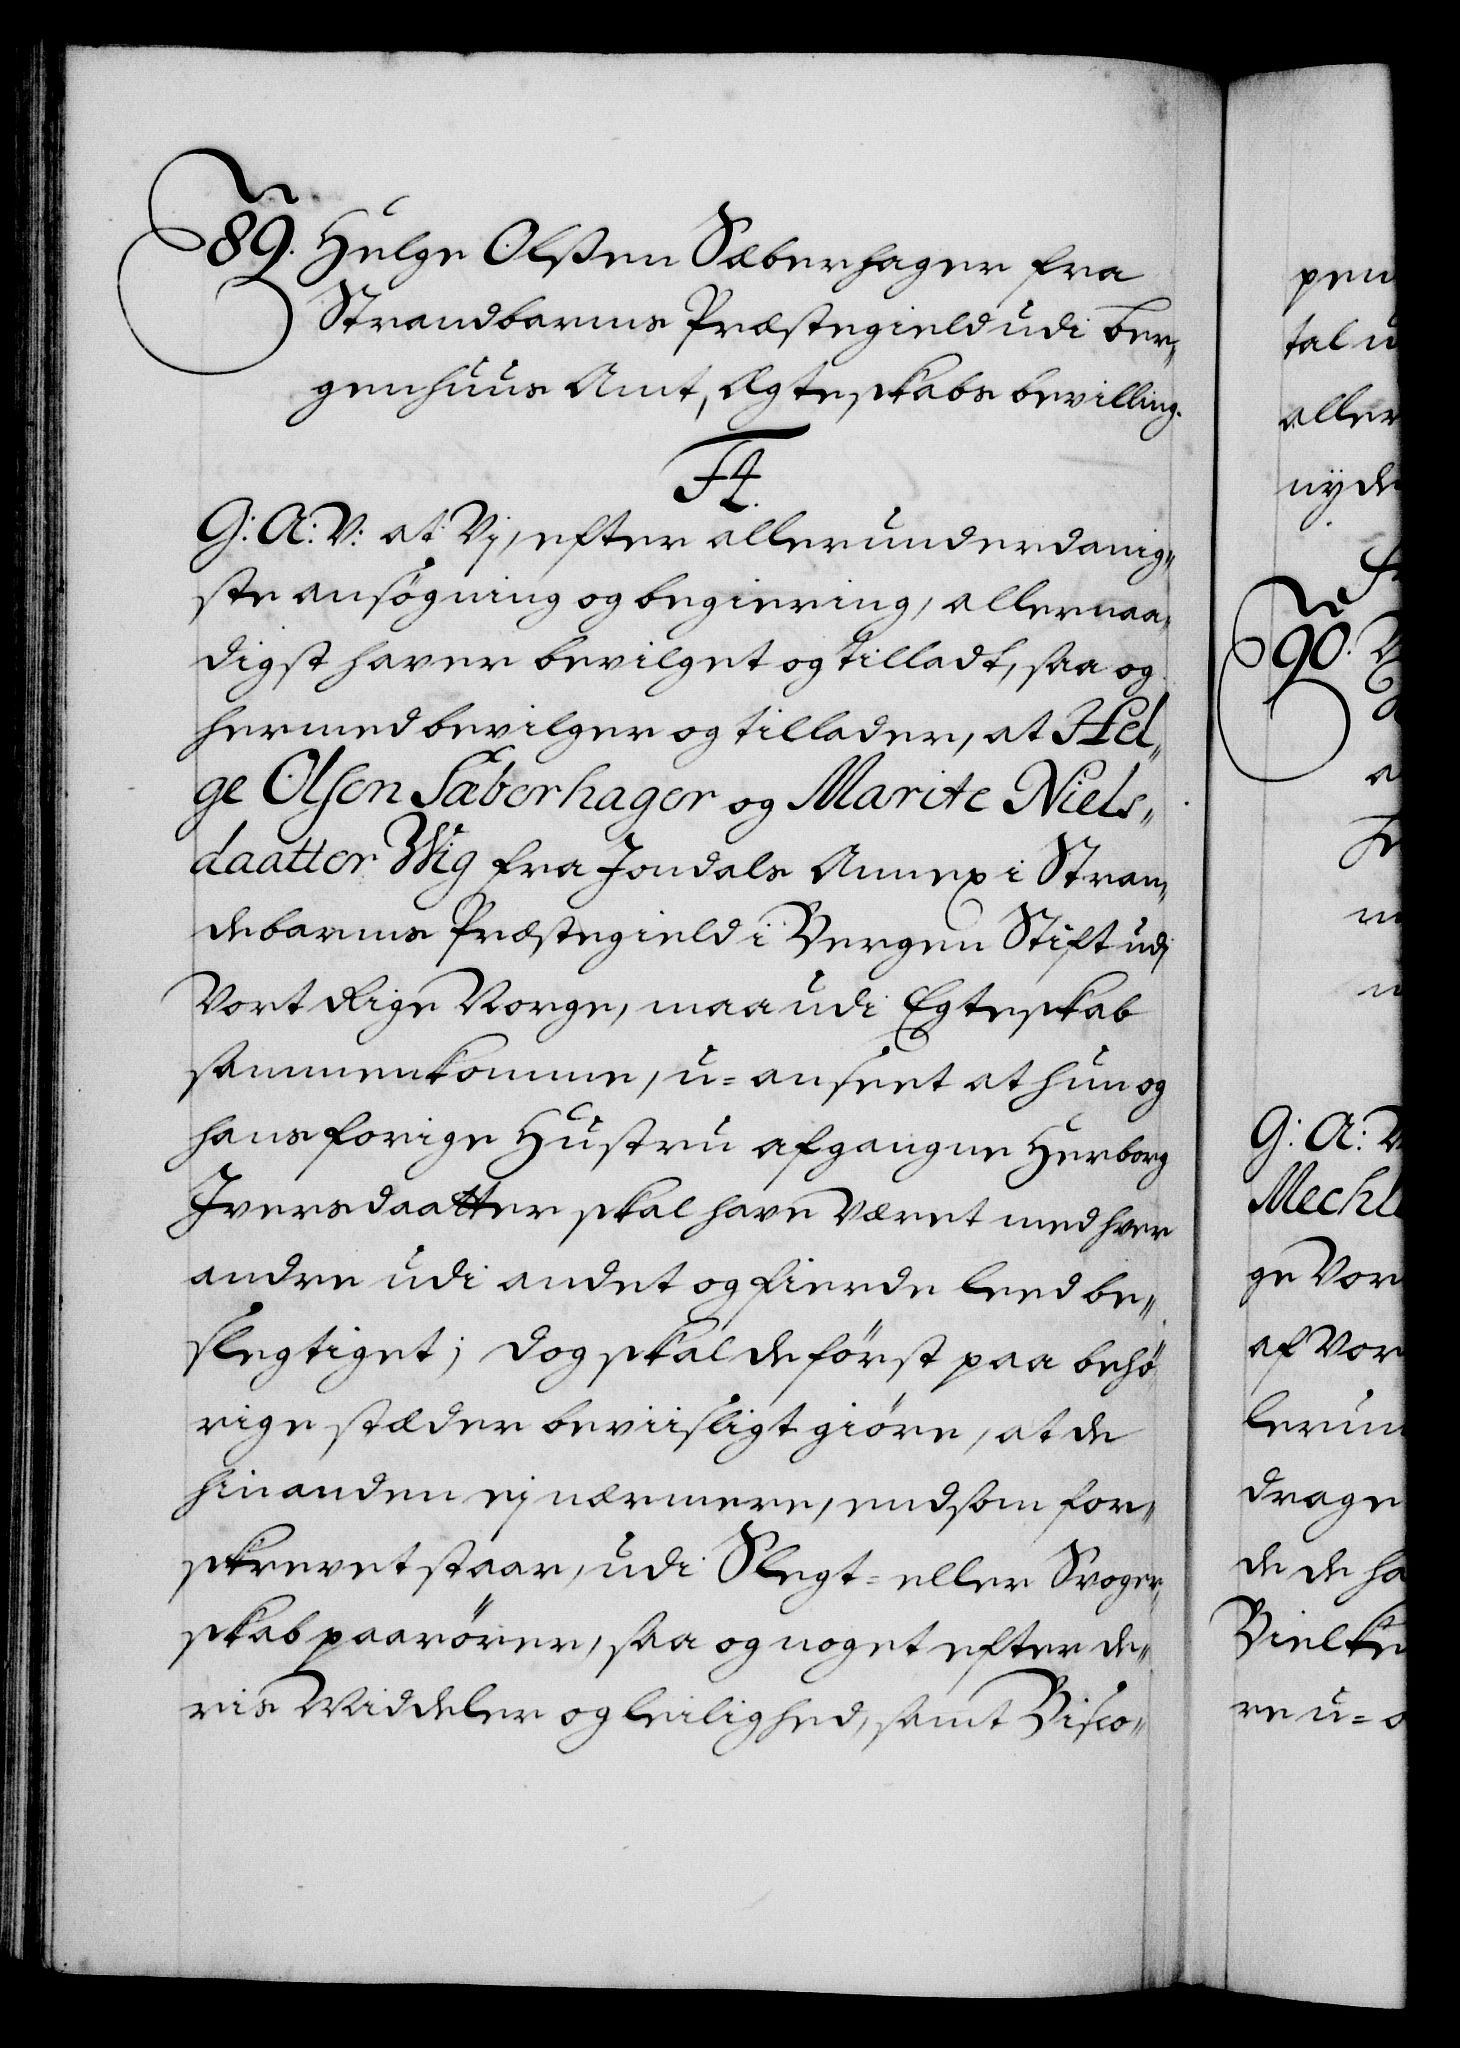 89. Helge Olssen Sæberhager fra
Strandbarms Præstegield udi Ber„
genhuus Amt, Ægteskabs bevilling.
F4.
G: A: V: at Vj, efter allerunderdanig„
ste ansøgning og begiering, allernaa„
digst haver bevilget og tilladt, saa og
hermed bevilger og tillader, at Hel„
ge Olsen Sæberhager og Marite Niels„
daatter Wiig fra Jondals Annex i Stran„
debarms Præstegield i Bergen Stift udj
Vort Rige Norge, maa udi Egteskab
sammenkomme, u=anseet at hun og
hans forige Hustru afgangne Herborg
Iversdaatter skal have Været med hver
andre udi andet og fierde leed be„
slegtiget; dog skal de først paa behø
rige stæder beviisligt giøre, at de
hinanden ej nærmere, end som for„
skrevet staar, udi Slegt= eller Svoger„
skab paarører, saa og noget efter de„
ris Middeler og leilighed, samt Bisco„
pen
tal u
aller
nyde
90.
G: A: V
Mechl
ge Vor
af Vor
lerun
drage
de de ha
Bielke
re u=